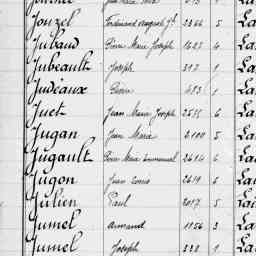 Jouzel Ferdinand August Jh 2366 5 La
Jubaud Pierre Marie Joseph 1627 4 La
Jubeault Joseph 317 1 La
Judéaux Pierre 483 1 La
Juet Jean Marie Joseph 2515 6 La
Jugan Jean Marie 2100 5 La
Jugault Pierre Marie Emmanuel 2614 6 La
Jugon Jean Louis 2619 6 La
Julien Paul 2017 5 La
Jumel Armand 1156 3 La
Jumel Joseph 328 1 La